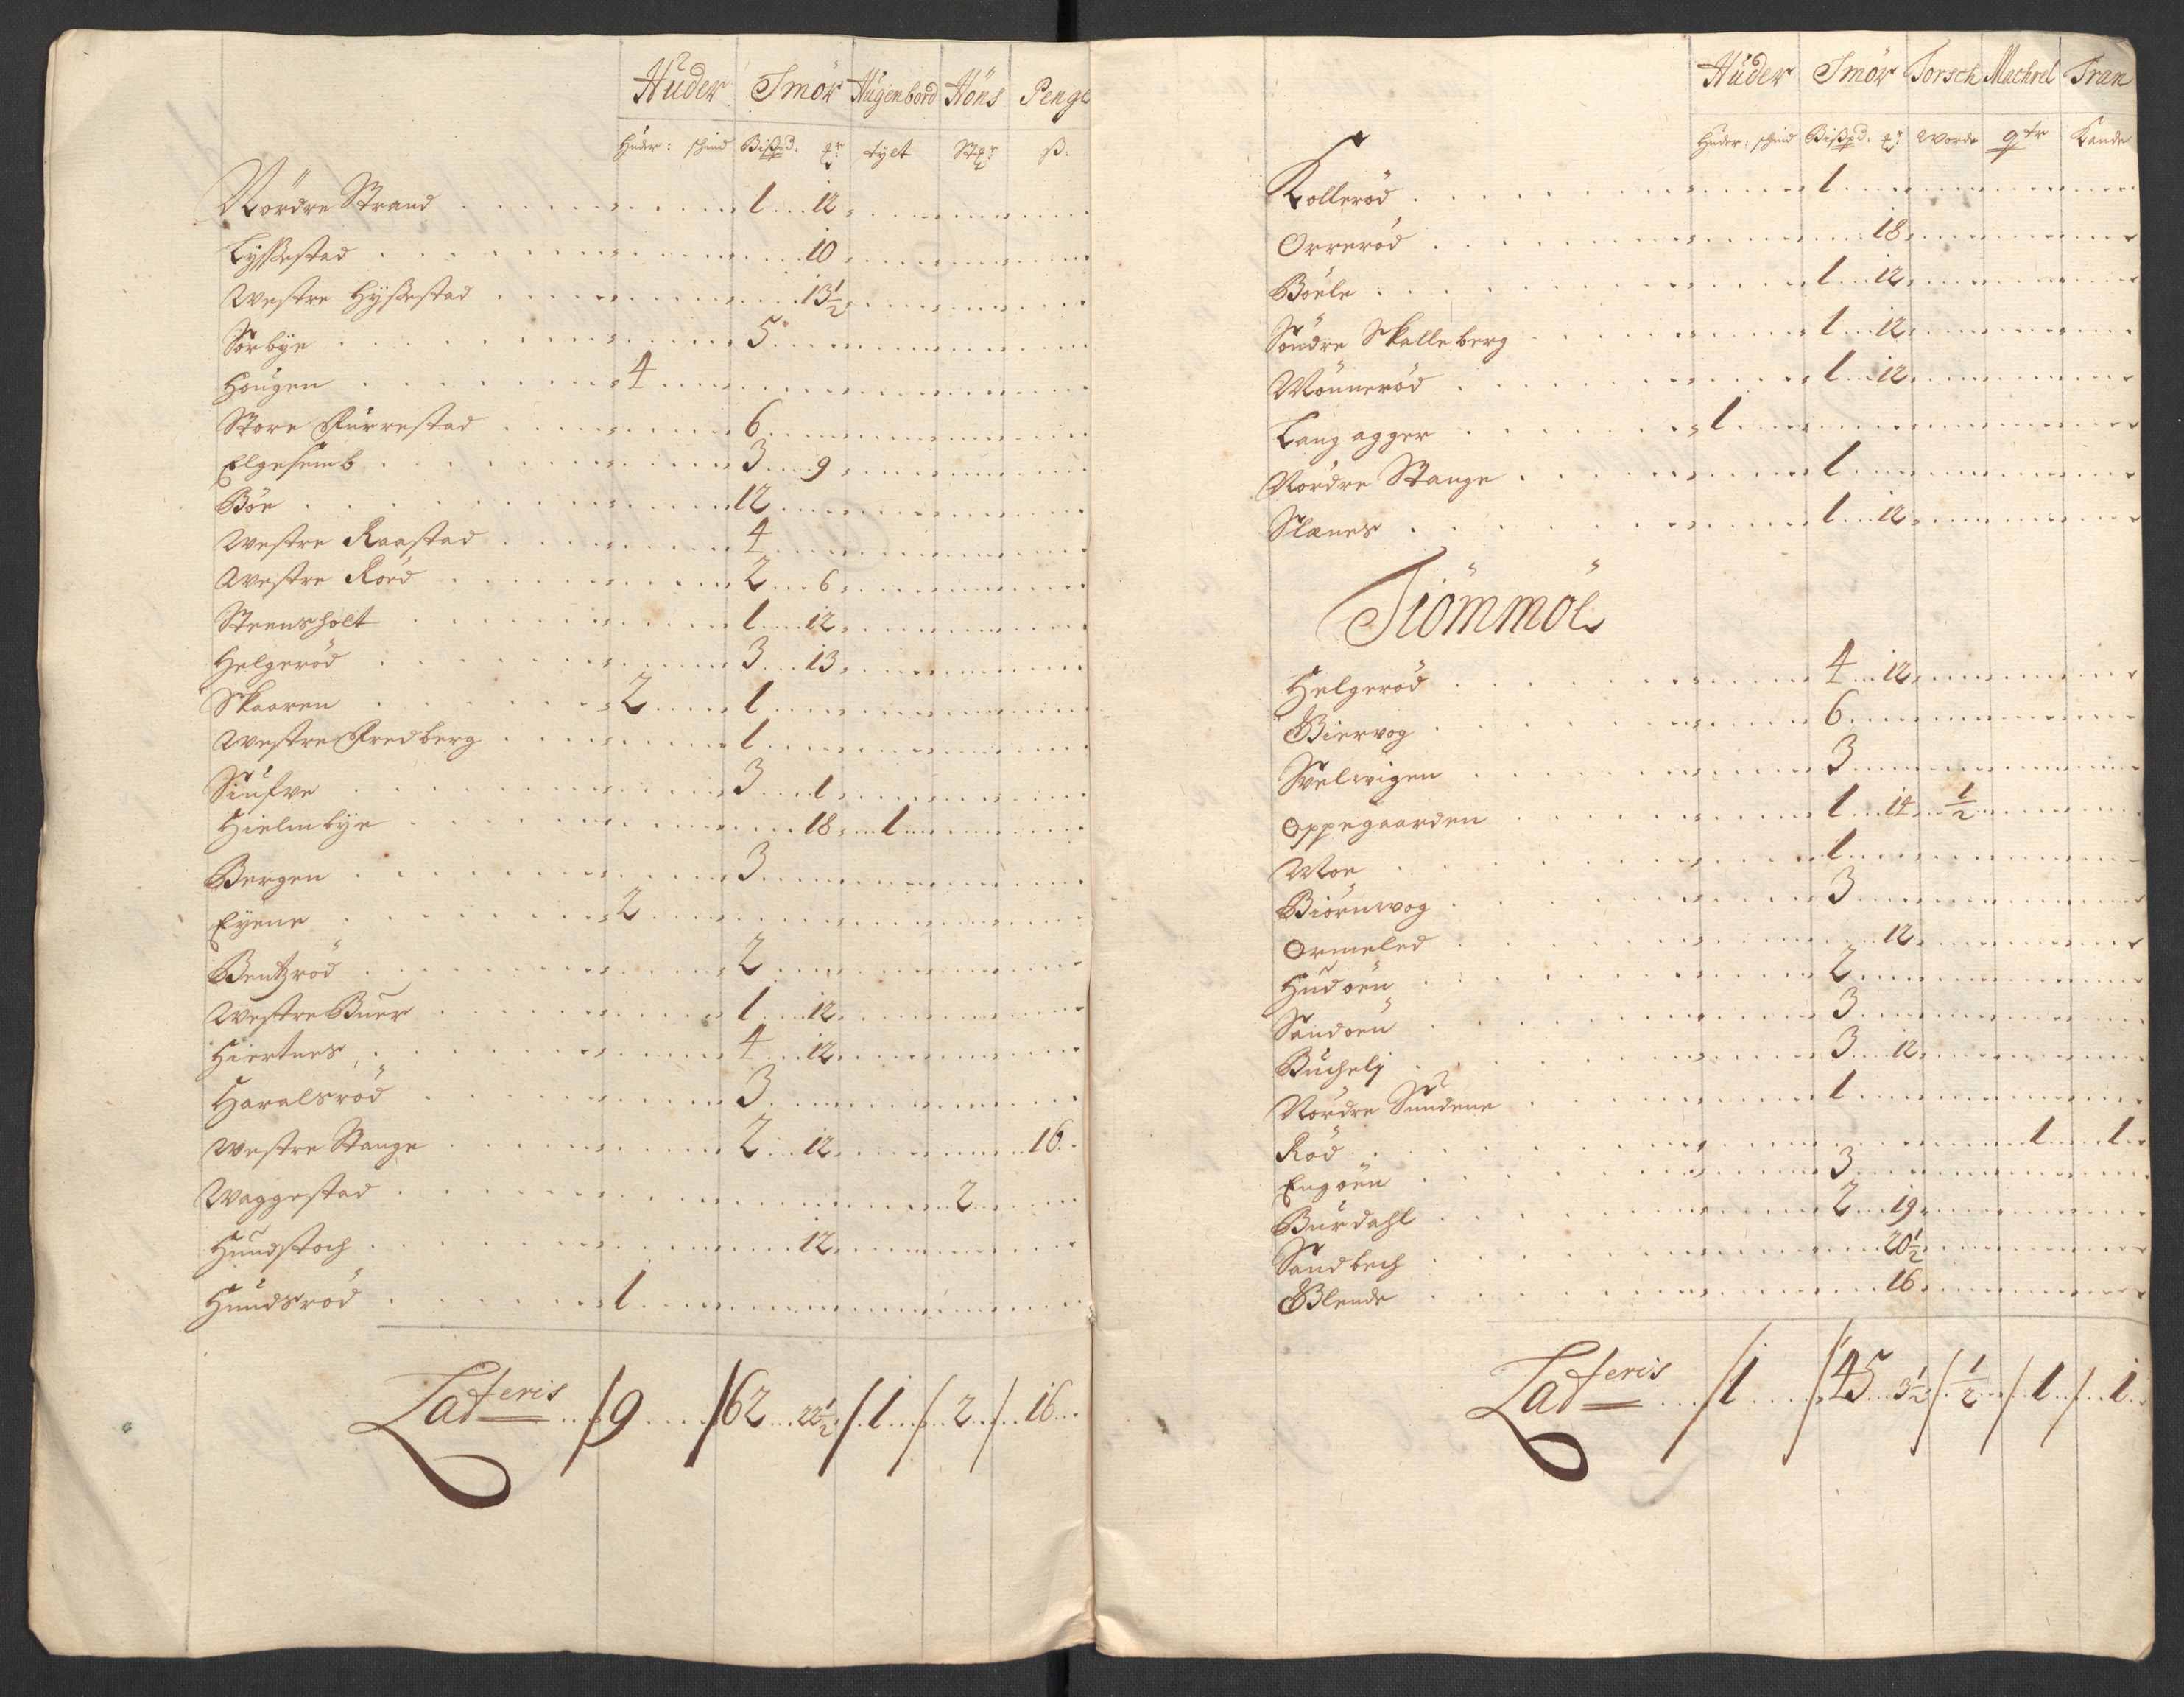 Huder Smör Hugenbord Höns Penge
Huder: schind Bißpd. tylt ß.
Nördre Strand 1 12
Lyßestad 10
Westre Hyßestad 13½
Sörbye 5
Hougen 4
Store Furrestad 6
Elgesemb 3 9
Böe 12
Westre Raastad 4
Westre Röed 2 6
Steensholt 1 12
Helgeröd 3 13
Skaaren 2 1
Westre Fredberg 1
Siufve 3 1
Hielmbye 18 1
Bergen 3
Eyene 2
Bentzröd 2
Westre Buer 1 12
Hiertnes 4 12
Haralsröd 3
Westre Stange 2 12 16
Waggestad 2
Hundstoch 12
Hundsröd 1
Lateris 9 62 22½ 1 2 16
Huder Smör Torsch Machrel Tran
Huder: schind Bißpd. Worde qtr Kande
Kolleröd 1
Orreröd 18
Böele 1 12
Söndre Skalleberg 1 12
Mönneröd 1 12
Langagger 1
Nordre Stange 1
Slanes 1 12
Tiömmöe
Helgeröd 4 12
Biervog 6
Svelwigen 3
Oppegaarden 1 14 ½
Moe 1
Biörnwog 3
Ormeled 12
Hudöen 2
Sandöen 3
Buchelj 3 12
Nordre Sundene 1
Röd 1 1
Engöen 3
Burdahl 2 19
Sandbech 20½
Blende 16
Lateris 1 45 3½ ½ 1 1